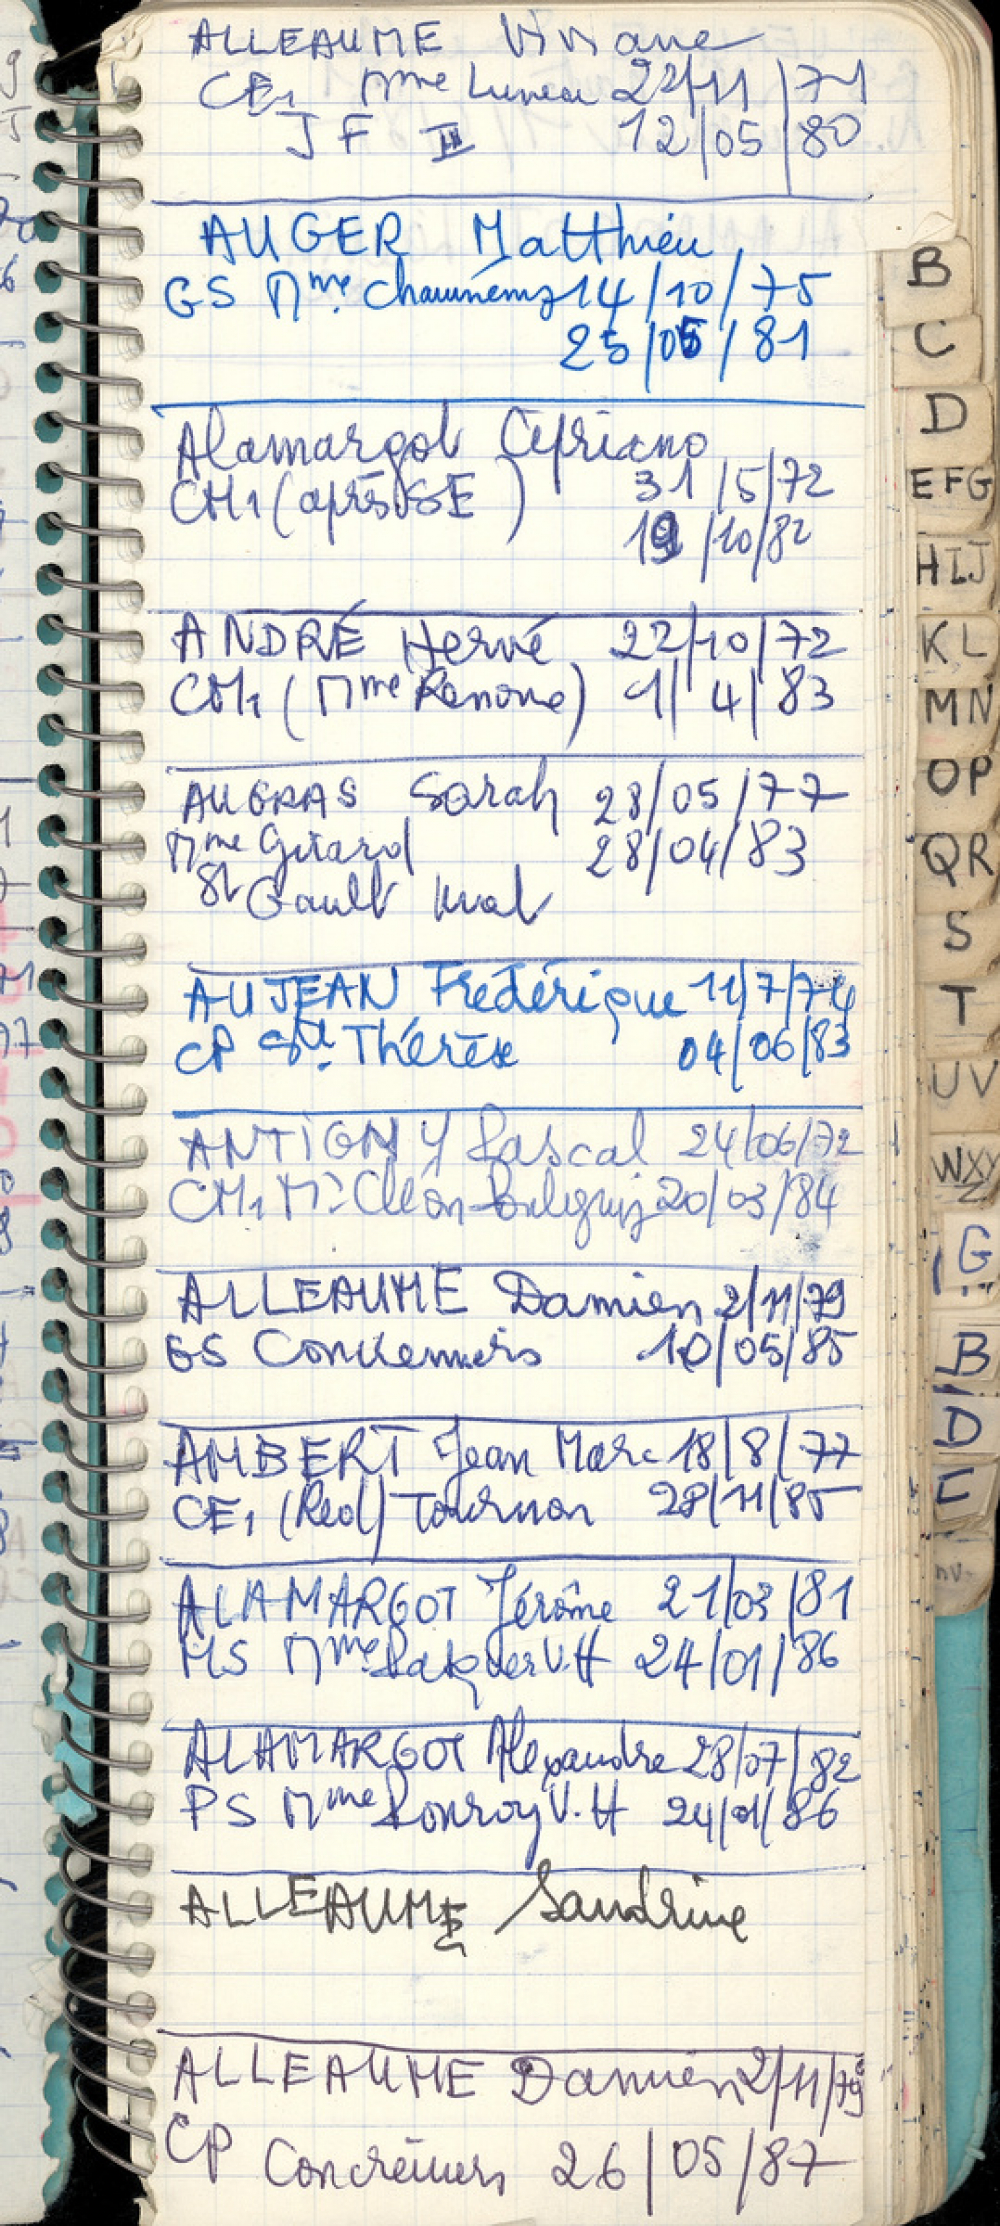 ALLEAUME Viviane
CE1 Mme Luneau 22/11/71
JF III 12/05/80
AUGER Matthieu
GS Mme 14/10/75
25/05/81
Alamargot Cipriano
CM1 (après SE) 31/5/72
19/10/82
ANDRÉ Hervé 22/10/72
CM1 (Mme Renome) 1/4/83
AUGRAS Sarah 28/05/77
Mme Girard 28/04/83
St Gault
AUJEAN Frédérique 11/7/74
CP Ste Thérèse 04/06/83
ANTIGNY Pascal 24/06/72
CM1 Mr 20/03/84
ALLEAUME Damien 2/11/79
GS 10/05/85
AMBERT Jean Marc 18/8/77
CE1 (Red) Tournon 28/11/85
ALAMARGOT Jérôme 21/03/81
MS Mme Paquer V.H 24/01/86
ALAMARGOT Alexandre 28/07/82
PS Mme Ronroy V.H 24/01/86
ALLEAUME Sandrine
ALLEAUME Damien 2/11/79
CP Concremiers 26/05/87
B
C
D
EFG
HIJ
KL
MN
OP
QR
S
T
UV
WXY
G
B
D
C